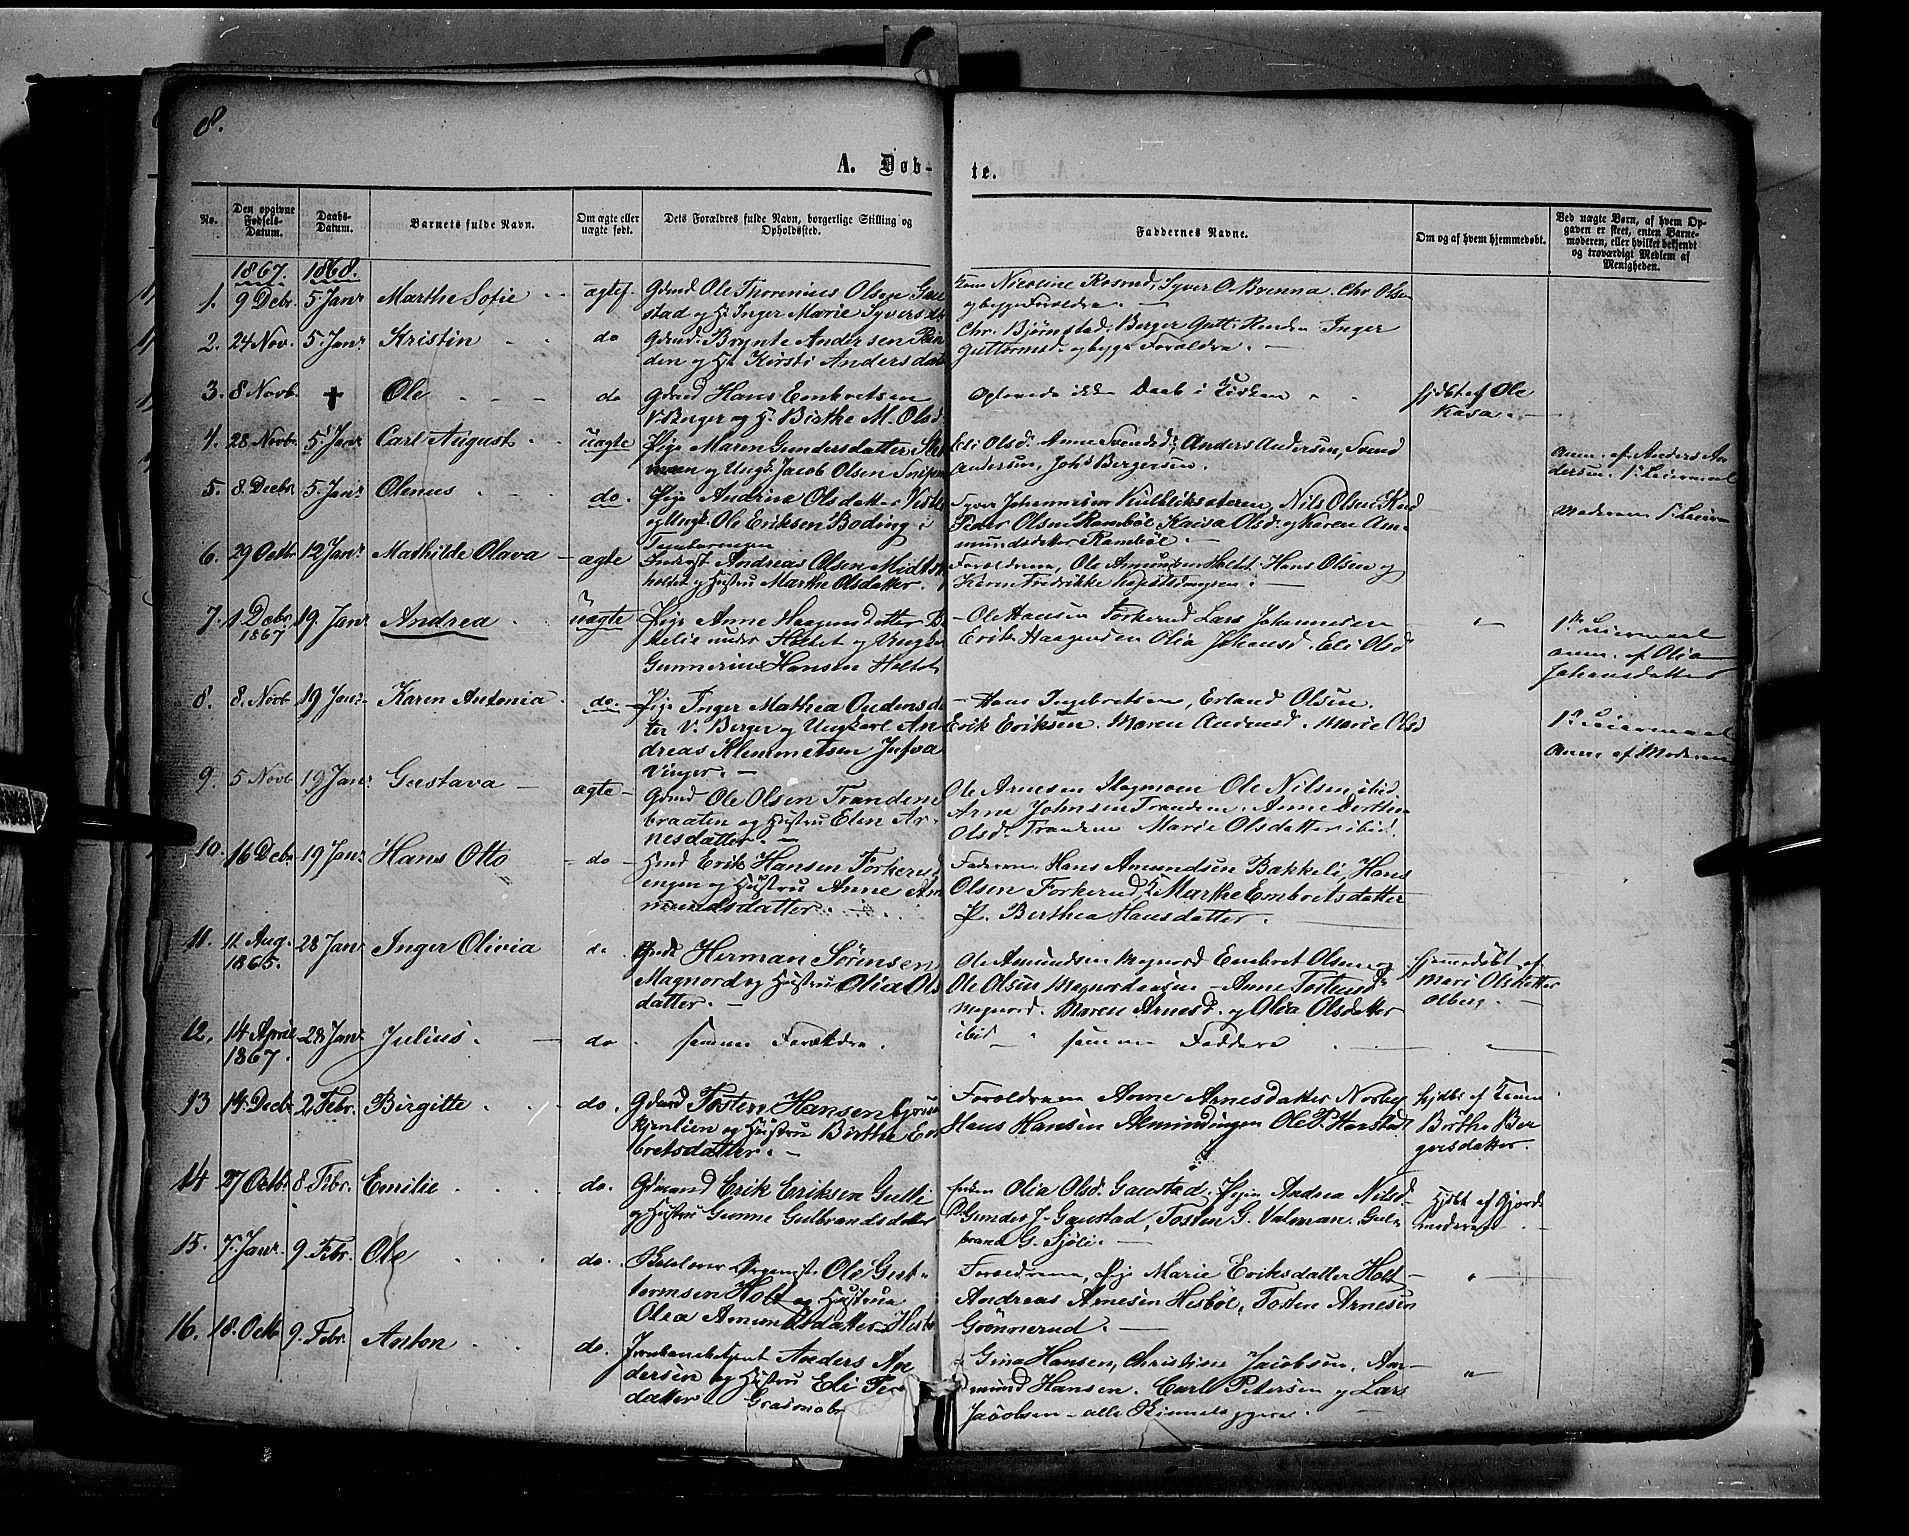 8.
A. Døb-
te.
No.
Den opgivne Fødsels-Datum.
Daabs-Datum.
Barnets fulde Navn.
Om ægte eller uægte født.
Dets Forældres fulde Navn, borgerlige Stilling og Opholdssted.
Faddernes Navne.
Om og af hvem hjemmedøbt.
Ved uægte Børn, af hvem Opgaven er skeet, enten Barnemoderen, eller hvilket bekjendt og troværdigt Medlem af Menigheden.
1867. 1868.
1. 9 Debr. 5 Janr Marthe Sofie ægtef. Gdmd Ole Thorenius Olsen Gau
stad og H. Inger Marie Syversd
Nicoline Rosrud, Syver O. Brenna. Chr Olsen
og begge Forældre.
2. 24 Nov. 5 Janr Kristin do Gdmd. Brynte Andersen
den og H. Kirsti Andersdat
Chr. Bjørnstad. Berger Gutt. Inger
Guttormsd. og begge Forældre.
3. 8 Novb. † Ole do Gdmd Hans Embretsen
V. Berger og H. Birthe M. Olsd
ikke Daab i Kirken
hjdbt af Ole
Kasa.
4. 28 Novbr 5 Janr Carl August uægte Pige Maren Gundersdatter
og Ungk. Jacob Olsen
Eli Olsd. Anne Svendsd. Anders Andersen, Svend
Andersen, Johs Bergersen.
Anm. af Anders An
dersen. 1s Leiermaal
5. 8. Decbr 5 Janr Olenus do. Pige Andrine Olsdatter
og Ungk. Ole Eriksen Boding i
Syver Johannesen Nils Olsen
Peder Olsen Rambøl Kaisa Olsd. og Karen Am-
mundsdatter Rambøl.
Moderen 1s Leierm
6. 29 Octbr 12 Janr Mathilde Olava ægte Indrgst Andreas Olsen Midt
holtet og Hustru Marthe Olsdatter.
Forældrene, Ole Amundsen Holtet. Hans Olsen og
Karen Fredrikke
7. 1 Debr. 1867 19. Janr Andrea uægte Pige Anne Haagensdatter
under Holtet og Ungk.
Gunnerius Hansen Holtet
Ole Hansen Forkerud Lars Johannesen
Erik Haagensen Olia Johansd. Eli Olsd
"
1ste Leiermaal
anm. af Olia
Johansdatter
8. 8. Novb 19 Janr. Karen Antonia do. Pige Inger Mathea Oudensdat
ter V. Berger og Ungkarl An
dreas Klemmetsen
Vinger.
Hans Ingebretsen, Erland Olsen.
Erik Eriksen. Maren Audensd. Marie Olsd
1s Leiermaal
Anm. af Moderen
9. 5 Novb 19 Janr. Gustava ægte Gdmd Ole Olsen Trandem
braaten og Hustru Elen Ar-
nesdatter.
Ole Arnesen Skogmoen Ole Nilsen ibid.
Arne Johnsen Trandem. Anne Dorthea
Olsd. Trandem Marie Olsdatter ibid.
10. 16 Debr 19 Janr Hans Otto do Erik Hansen Forkerud
engen og Hustru Anne Am
mundsdatter.
Faderen Hans Amundsen Bakkeli, Hans
Olsen Forkerud K. Marthe Embretsdatter
P. Berthea Hansdatter.
11. 11 Aug. 1865. 28 Janr Inger Olivia do Herman Sørensen
Magnord og Hustru Olia Ols
datter.
Ole Amundsen Magnord Embret Olsen
Ole Olsen Anne
Magnord. Maren Arnesd. og Olia Olsdatter
ibid
Hjemmedøbt af
Mari Olsdatter
12. 14 April 1867. 28 Janr Julius. do samme Forældre. samme Faddere
13 14 Decbr 2 Febr. Birgitte do. Gdmd Tosten Hansen
og Hustru Birthe Em
bretsdatter.
Forældrene Anne Arnesdatter Norby
Hans Hansen Almindingen Ole P. Harstad
hjdbt af
Birthe Ber
gersdatter.
14 27 Octbr. 8 Febr. Emilie do. Gdmand Erik Eriksen Gulli
og Hustru Gunne Gulbrandsdatter
Olia Olsd. Gaustad, Pigen Andrea Nilsd.
Gunder J. Gaustad, Tosten G. Valman. Gul-
brand G. Sjøli.
Hjdbt af Gjorde
moderen
15. 7. Janr. 9. Febr. Ole do. Ole Gut-
tormsen Holt og Hustru
Olea Amundsdatter
Forældrene, Pige Marie Eriksdatter Holt
Andreas Arnesen Hesbøl, Tosten Arnesen
Grønnerud.
16. 18. Octb 9. Febr. Anton do. Jernbanebetjent Anders An
dersen og Hustru Eli
datter
Gina Hansen, Christine Jacobsen. Am-
mund Hansen. Carl Petersen og Lars
Jacobsen - alle